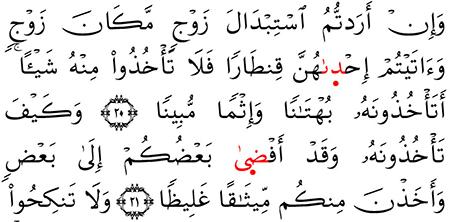 وَإِنْ أَرَدتُّمُ ٱسْتِبْدَالَ زَوْجٍ مَّكَانَ زَوْجٍ
وَءَاتَيْتُمْ إِحْدَىٰهُنَّ قِنطَارًا فَلَا تَأْخُذُوا۟ مِنْهُ شَيْـًٔا ۚ
أَتَأْخُذُونَهُۥ بُهْتَـٰنًا وَإِثْمًا مُّبِينًا ٢٥ وَكَيْفَ
تَأْخُذُونَهُۥ وَقَدْ أَفْضَىٰ بَعْضُكُمْ إِلَىٰ بَعْضٍ
وَأَخَذْنَ مِنكُم مِّيثَـٰقًا غَلِيظًا ٢١ وَلَا تَنكِحُوا۟